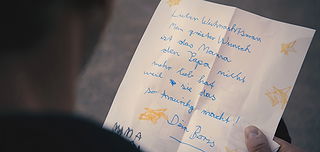 Lieber Weihnachtsmann
Mein größter Wunsch
ist das Mama
den Papa nicht
mehr lieb hat
weil sie das
so traurig macht!
Dein Boris
MAMA